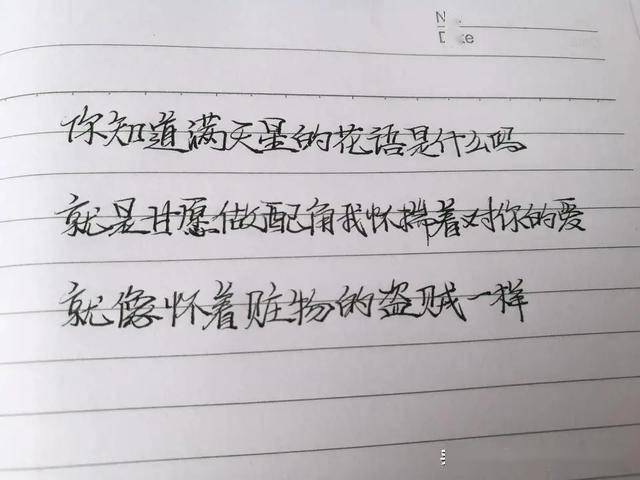 你知道满天星的花语是什么吗
就是甘愿做配角我怀揣着对你的爱
就像怀着赃物的盗贼一样